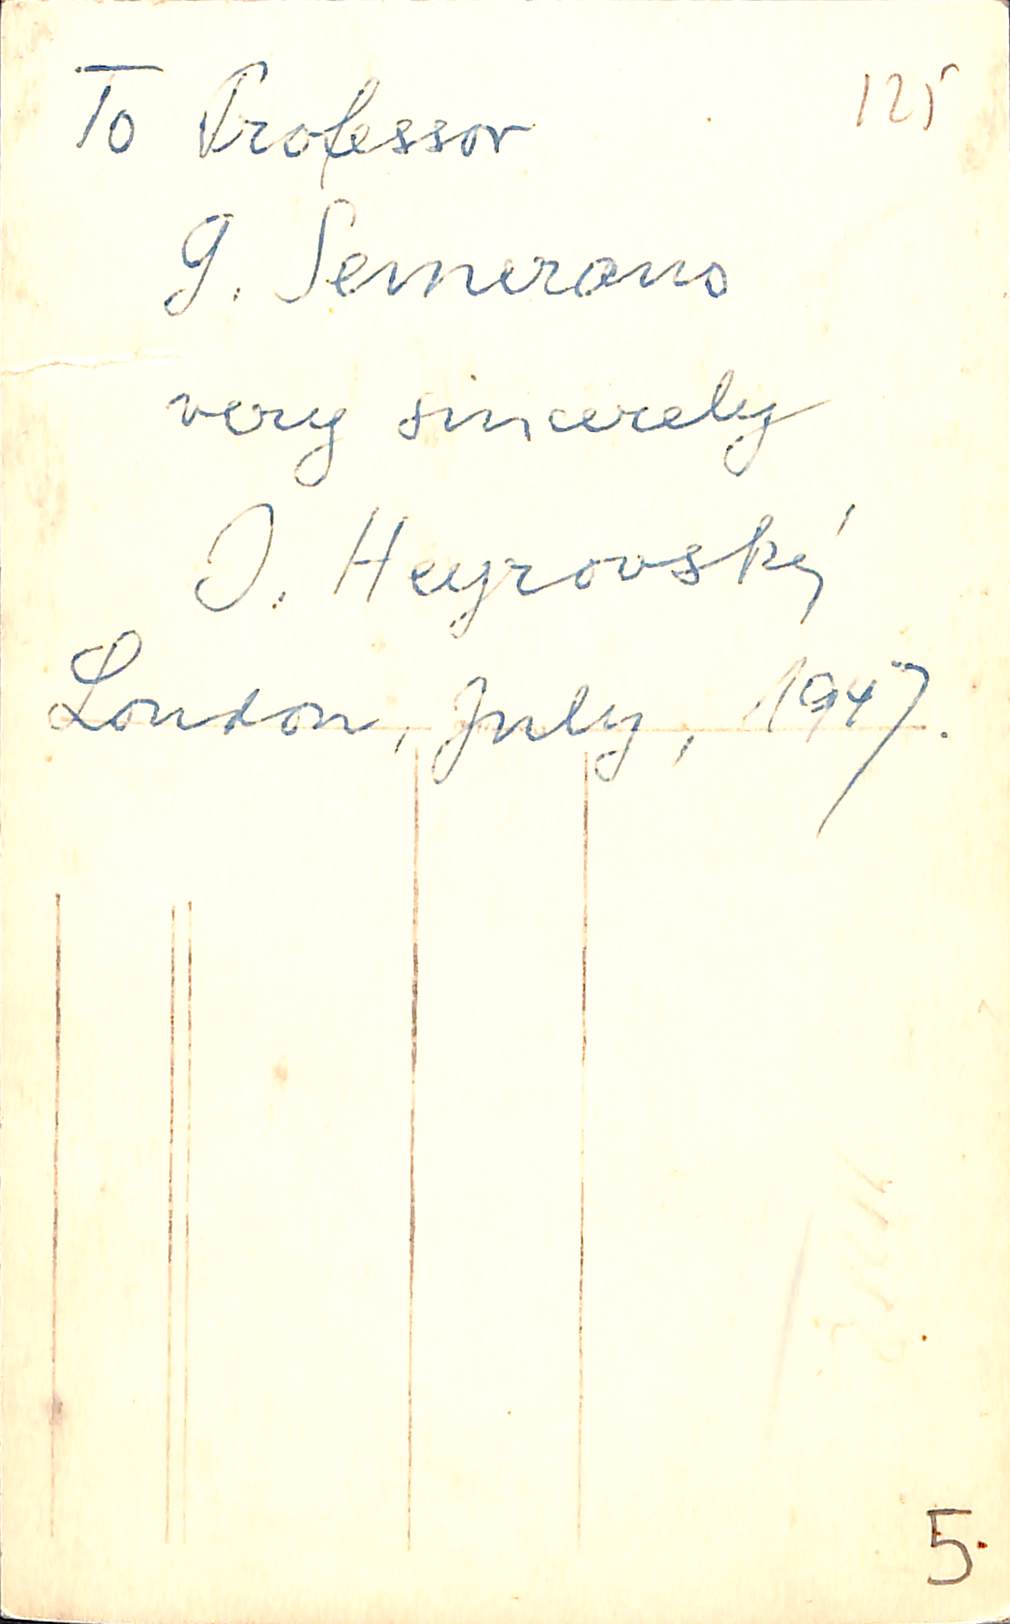 125
To Professor
G. Semerano
very sincerely
J. Heyrovský
London, July, 1947.
5.